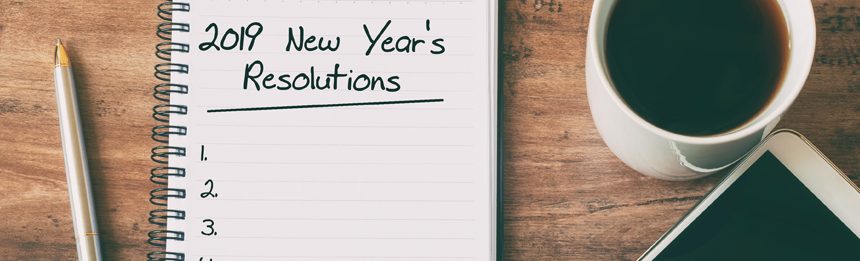 2019 New Year's
Resolutions
1.
2.
3.